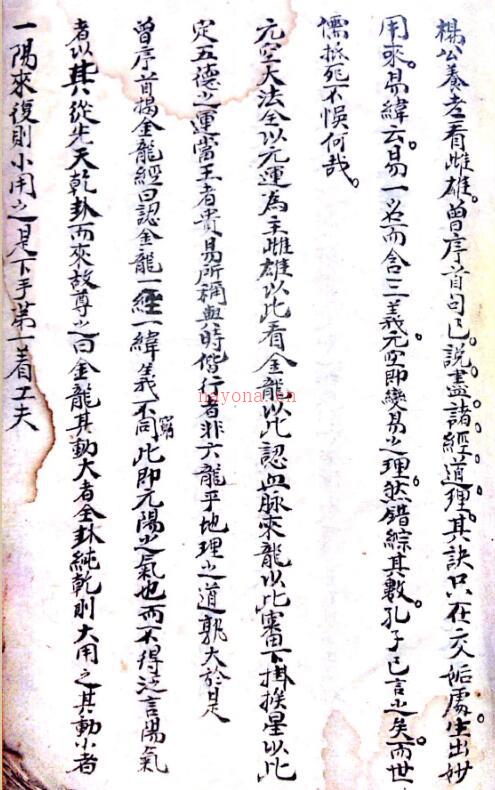 楊公養老看雌雄。曾序首句已說盡諸經道理。其訣只在交姤處。生出妙
用來。易緯云。易一名而含三義。元空即變易之理。然錯綜其數。孔子已言之矣。而世
儒抵死不悞何哉。
元空大法全以元運為主雌雄以此看金龍以此認血脉來龍以此審下掛挨星以此
定五德之運當王者貴易所稱與時偕行者非六龍乎地理之道孰大於是
曾序首揭金龍經曰認金龍一經一緯義不同窮此即元陽之氣也而不得泛言陽氣
者以其從先天乾卦而來故尊之曰金龍其動大者全卦純乾則大用之其動小者
一陽來復則小用之是下手第一着工夫
nayona.cn